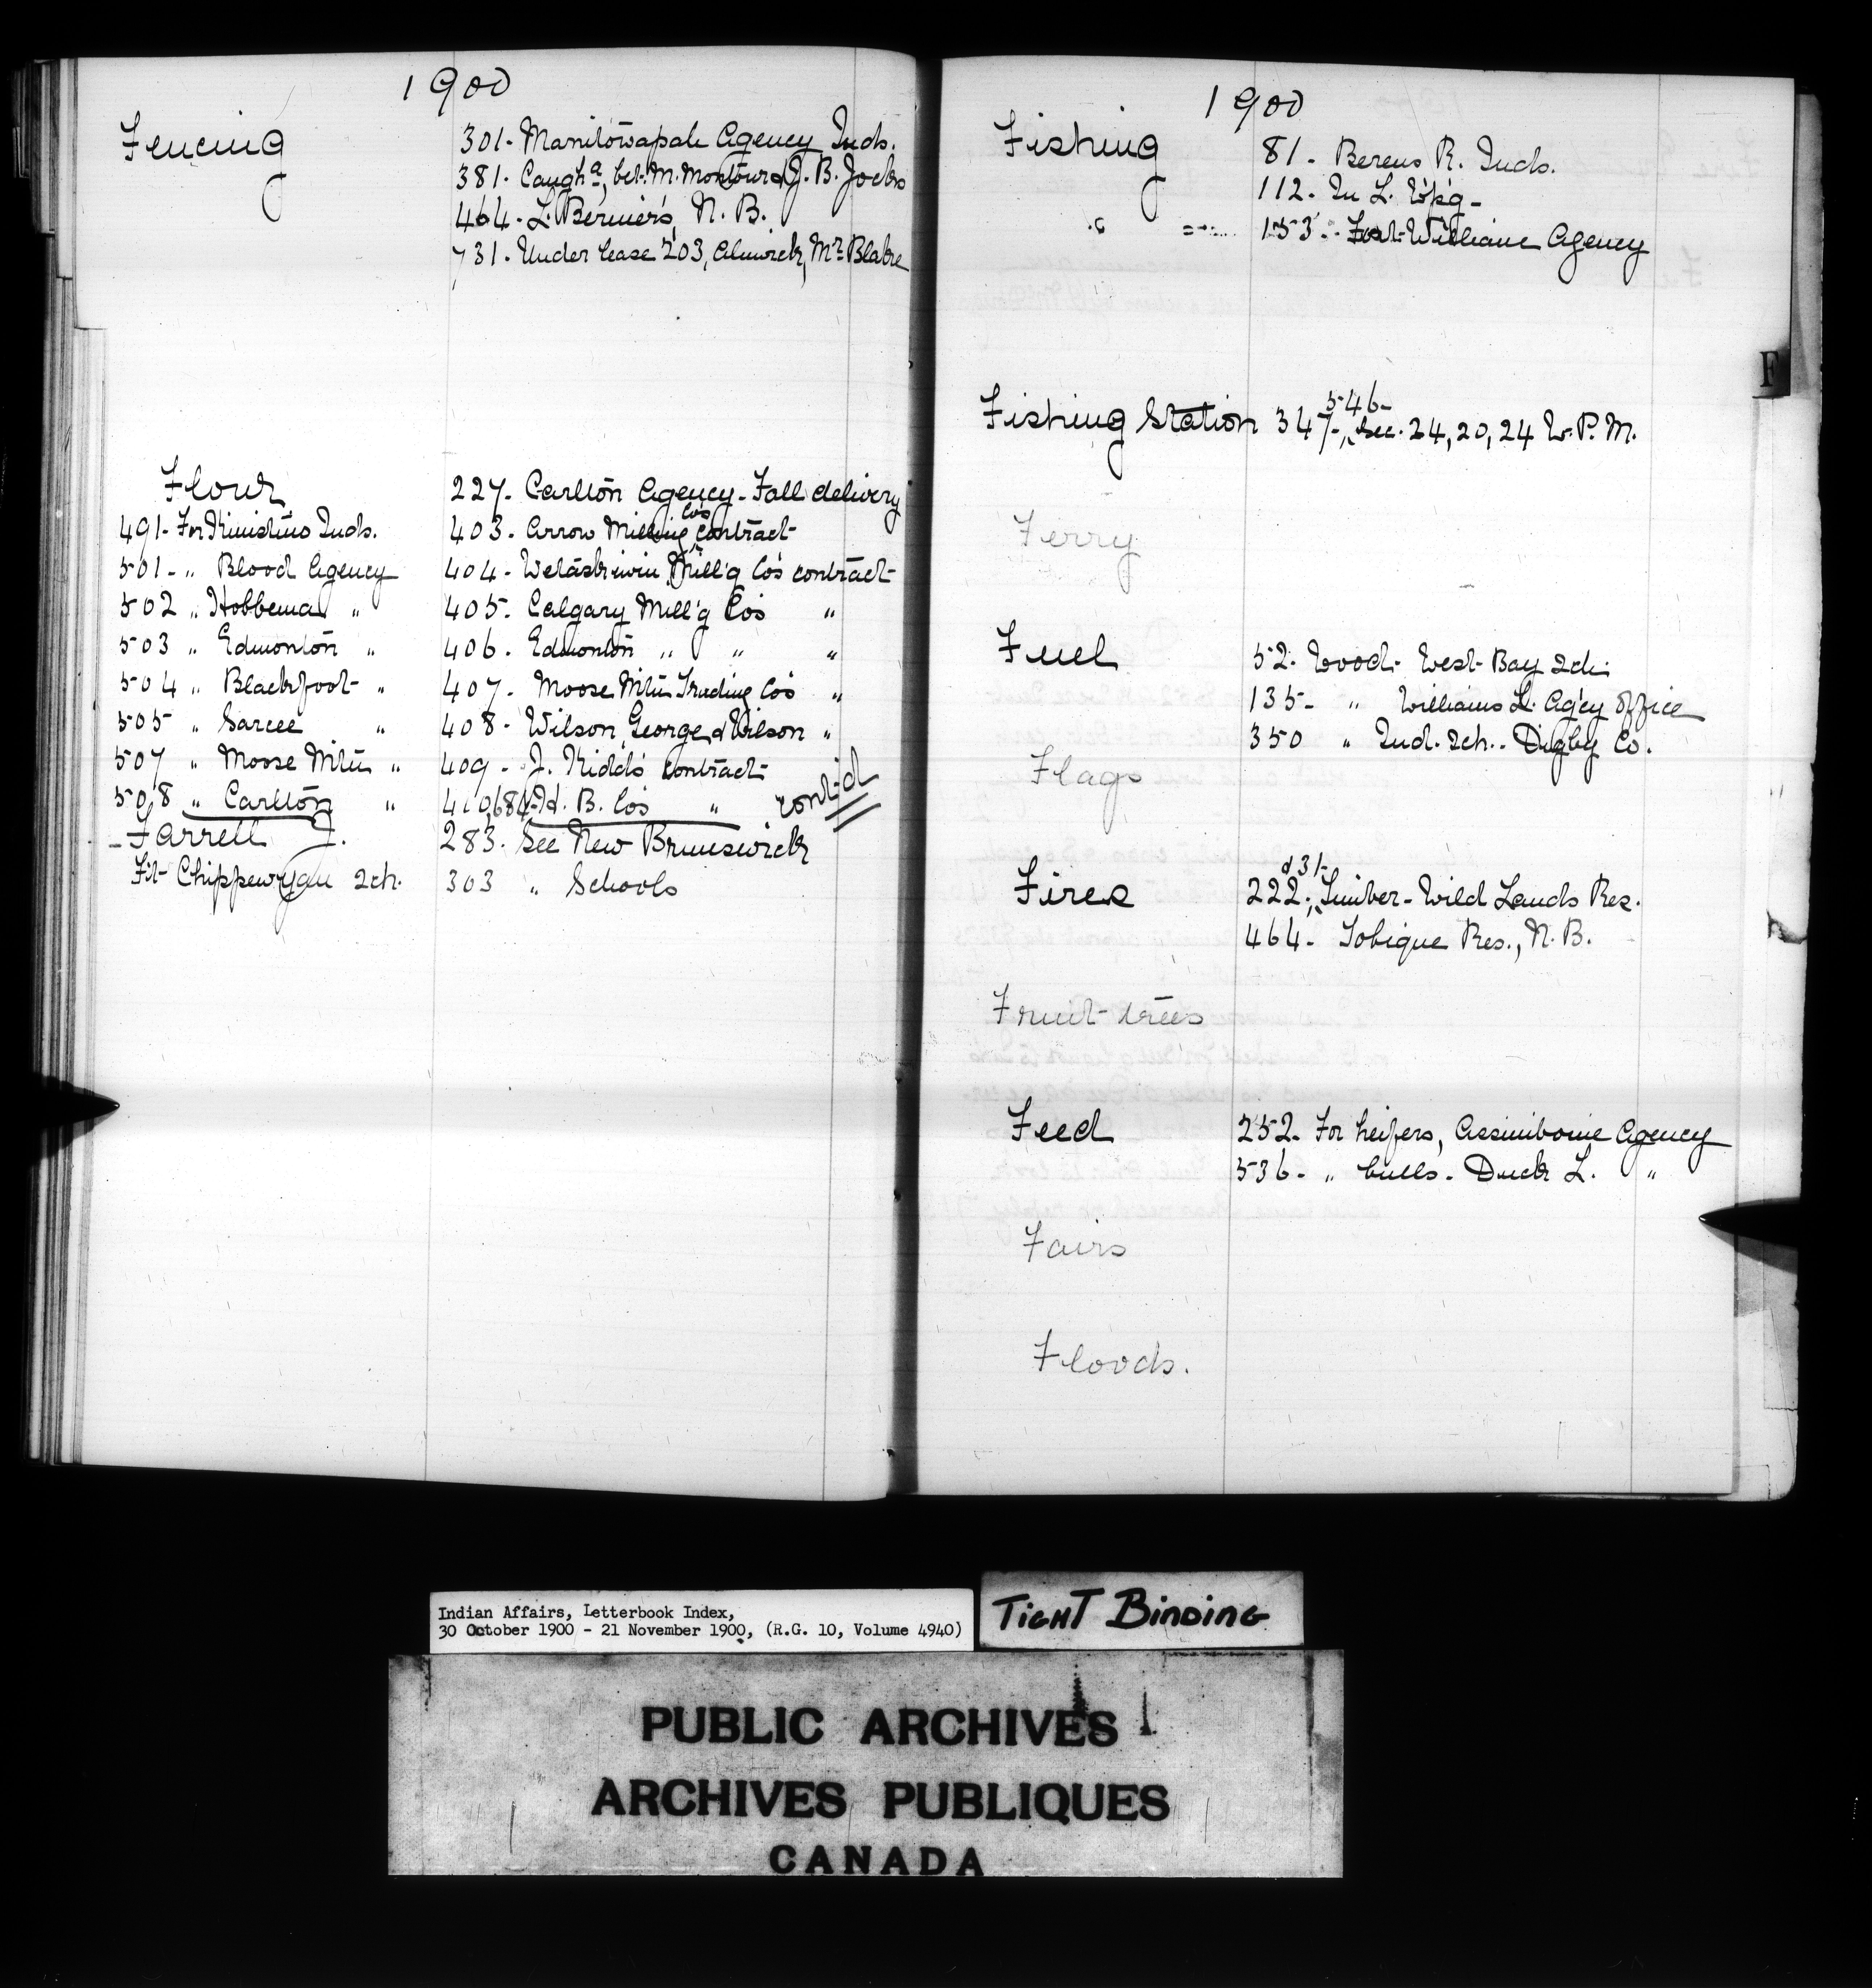 1900
Fencing 301. Manitowapah Agency Inds.
381. Caughª, bet. M. Montour & J. B. Jocks
464. L. Bernier's, N. B.
731. Under lease 203, Alnwick, Mr Blake
Flour 227. Carlton Agency - Fall delivery
491. For Kinistino Inds. 403. Arrow Milling Co's contract
501 - " Blood Agency 404 - Wetaskiwin Mill'g Co's contract
502 " Hobbema " 405. Calgary Mill'g Co's "
503 " Edmonton " 406. Edmonton " " "
504 " Blackfoot " 407. Moose Mtn Trading Co's "
505 " Sarcee " 408 - Wilson, George & Wilson "
507 " Moose Mtn " 409 - J. Kidd's contract
508 " Carlton " 410,684. H. B. Co's " cont'd
Farrell J. 283. See New Brunswick
Ft. Chippewyan Sch. 303 " Schools
1900
Fishing 81. Berens R. Inds.
112. In L. W'p'g -
" 153. Fort William Agency
546-
Fishing Station 347-, Sec. 24, 20, 24 W. P. M.
Ferry
Fuel 52. Wood - West Bay Sch.
135 - " Williams L. Ag'cy office
350 " Ind. Sch. - Digby Co.
Flags
& 31-
Fires 222. Timber - Wild Lands Res.
464. Tobique Res., N. B.
Fruit-trees
Feed 252. For heifers, Assiniboine Agency
536 - " bulls - Duck L. "
Fairs
Floods.
F
Indian Affairs, Letterbook Index,
30 October 1900 - 21 November 1900, (R.G. 10, Volume 4940)
TIGHT BINDING
PUBLIC ARCHIVES
ARCHIVES PUBLIQUES
CANADA